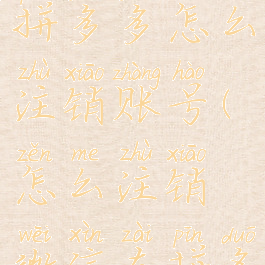 拼多多怎么
zhù xiāo zhàng hào
注销账号(
zěn me zhù xiāo
怎么注销
wēi xìn zài pīn duō
微信在拼多